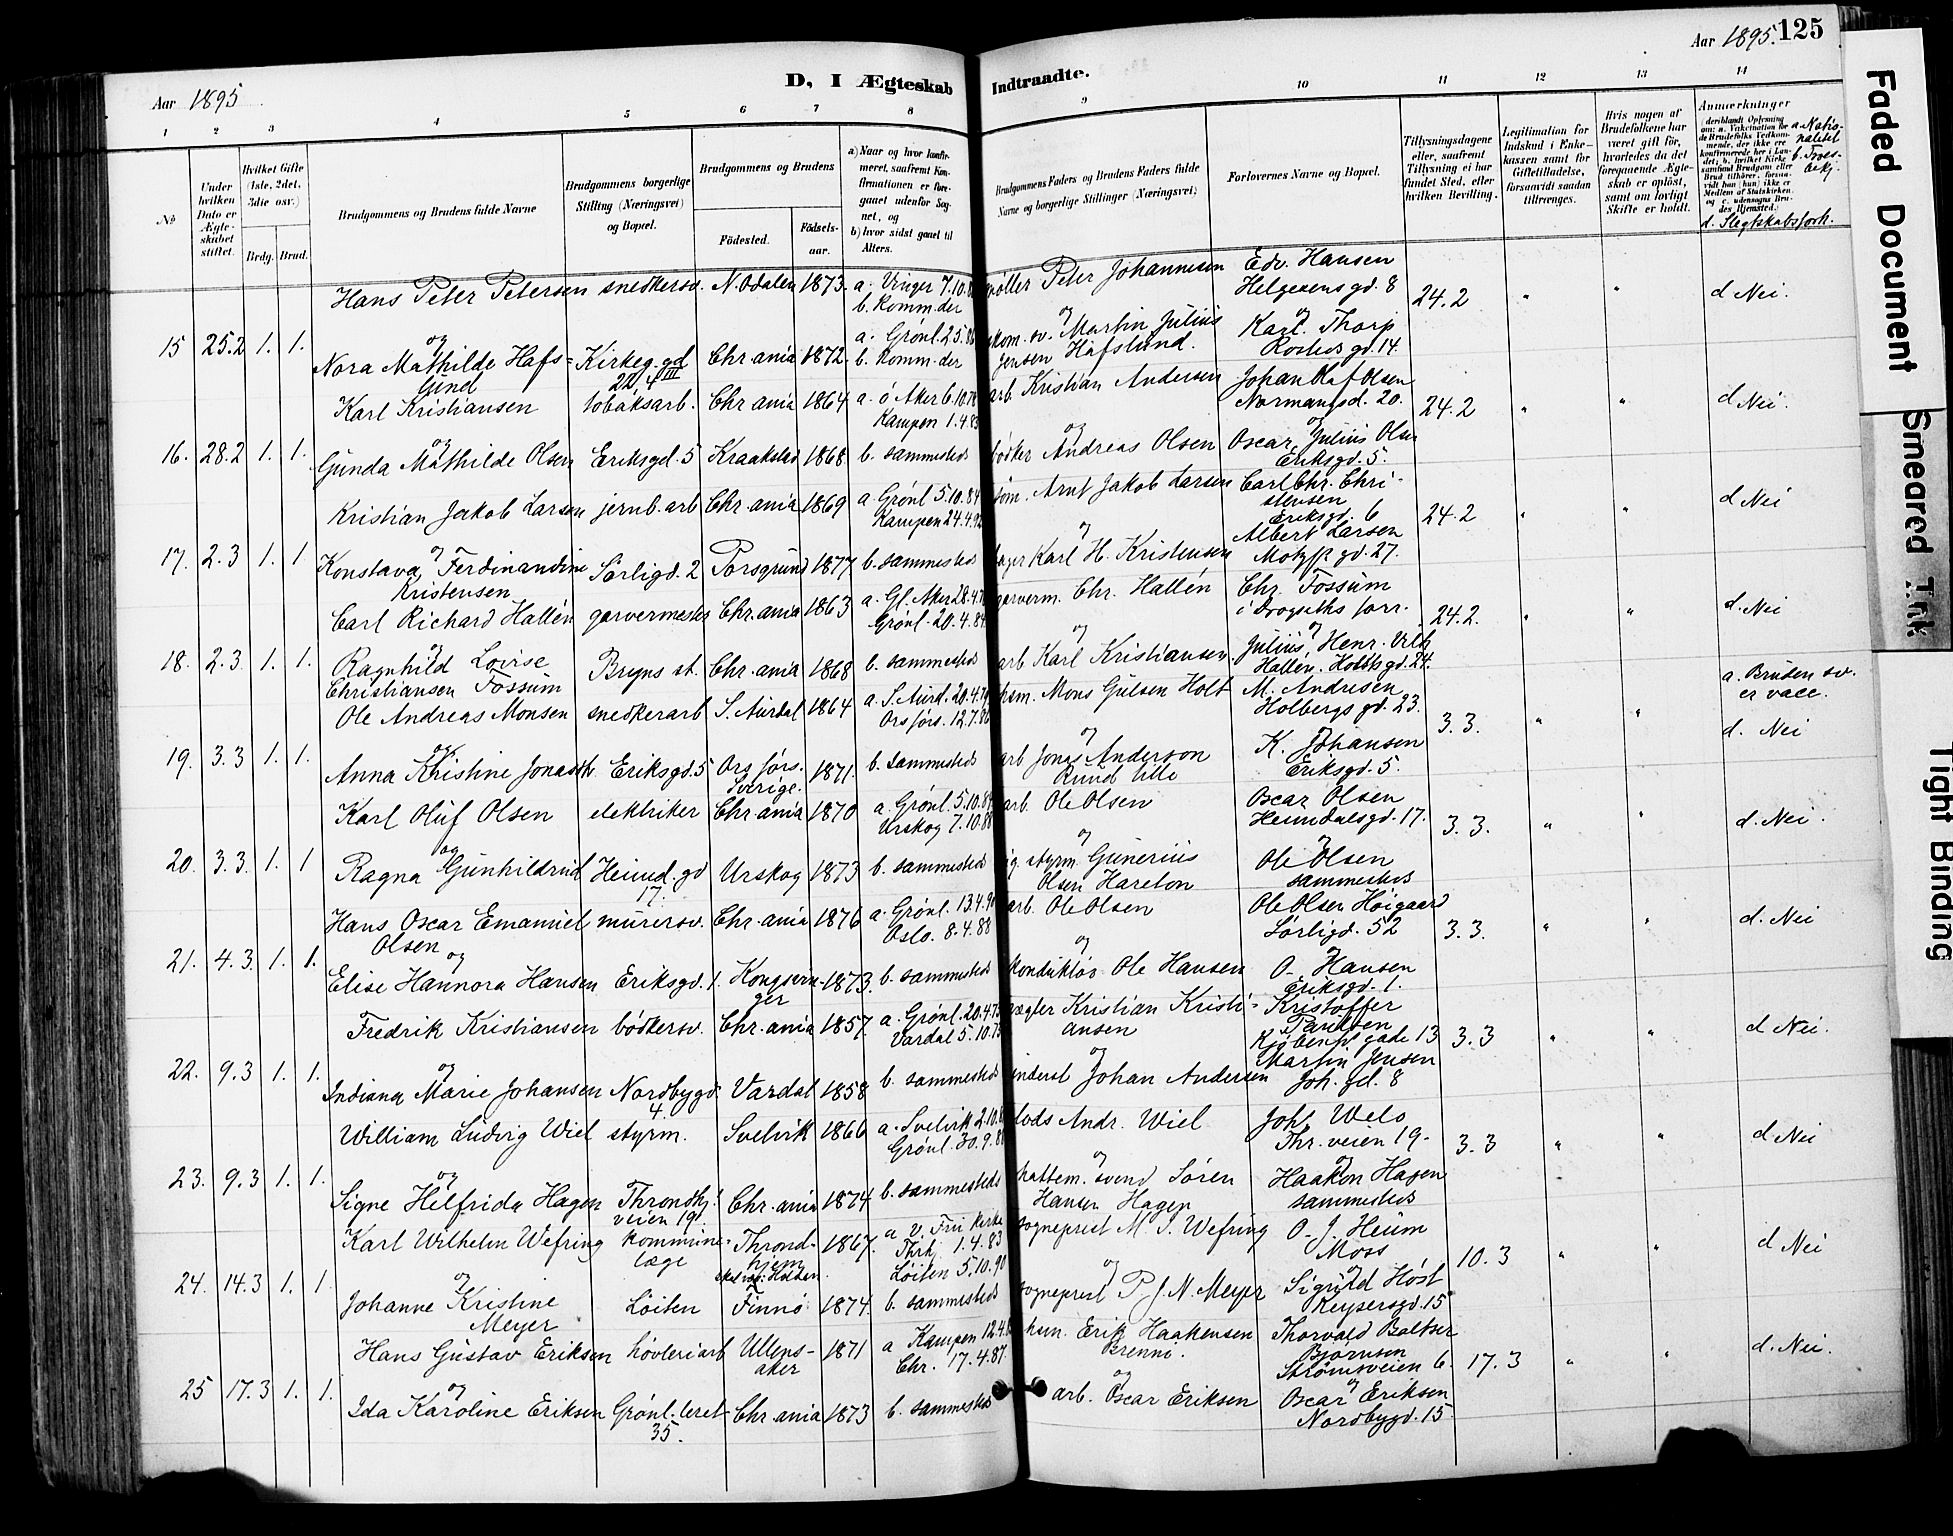 Aar 1895
D, I Ægteskab Indtraadte.
Aar 1895. 125
1 2 3 4 5 6 7 8 9 10 11 12 13 14
No
Under hvilken Dato er Ægteskabet stiftet.
Hvilket Gifte (1ste, 2det, 3die osv.)
Brdg. Brud.
Brudgommens og Brudens fulde Navne
Brudgommens borgerlige Stilling (Næringsvei) og Bopæl.
Brudgommens og Brudens
Fødested. Fødselsaar.
a) Naar og hvor konfirmeret, saafremt Konfirmationen er foregaaet udenfor Sognet, og
b) hvor sidst gaaet til Alters.
Brudgommens Faders og Brudens Faders fulde Navne og borgerlige Stillinger (Næringsvei)
Forlovernes Navne og Bopæl.
Tillysningsdagene eller, saafremt Tillysning ei har fundet Sted, efter hvilken Bevilling.
Legitimation for Indskud i Enkekassen samt for Giftetilladelse, forsaavidt saadan tiltrænges.
Hvis nogen af Brudefolkene har været gift før, hvorledes da det foregaaende Ægteskab er opløst, samt om lovligt Skifte er holdt.
Anmærkninger
d. Slegtskabsforh.
Hans Peter Petersen snedkersv. N. Odalen 1873. a. Vinger 7.10. møller Peter Johannesen Edv. Hansen
b. komm. der Helgesens gd. 8 24.2 " " d Nei.
15 25.2 1. 1. og a. Grønl. 2.5. og og
Nora Mathilde Hafs= Kirkeg. gd Chr.ania 1872. b. komm. der Martin Julius Karl Thorp
lund 22, 4 III Jensen Hafslund. gd. 14.
Karl Kristiansen tobaksarb. Chr.ania 1864 a. ø Aker arb Kristian Andersen Johan Olaf Olsen
Kampen 1.4. Normansgd. 20. 24.2 " " d Nei.
16. 28.2 1. 1. og og og
Gunda Mathilde Olsen Eriksgd. 5 Kraakstad 1868 b. sammesteds bødker Andreas Olsen Oscar Julius Olsen
Eriksgd. 5.
Kristian Jakob Larsen jernb. arb Chr.ania 1869 a. Grønl 5.10.84 Arnt Jakob Larsen Carl Chr. Chri-
Kampen 24.4. stensen
Eriksgd. 6 24.2 " " d Nei
17. 2.3 1. 1. og og Albert Larsen
Konstava Ferdinandine Sørligd. 2 Porsgrund 1877 b. sammesteds Karl H. Kristensen Motzf gd. 27.
Kristensen
Carl Richard Hallén garvermester Chr.ania 1863 a. Gl. Aker 28.4. garverm. Chr. Hallén Chr. Fossum
Grønl. 20.4. 24.2. " " d. Nei
18. 2.3. 1. 1. og og og
Ragnhild Lovise Bryns st. Chr.ania 1868 b. sammesteds arb Karl Kristiansen Julius Henr. Vilh
Christiansen Fossum Hallén. gd. 24.
a. Bruden sv. er vacc.
Ole Andreas Monsen snedkerarb S. Aurdal 1864 a. S. Aurd. 20.4. Mons Gulsen Holt M. Andresen
Ors förs. 12.7. Holbergs gd. 23. 3.3. " " d. Nei
19. 3.3 1. 1. og og og
Anna Kristine Eriksgd. 5 Ors förs. 1871. b. sammesteds arb Jonas Anderson K. Johansen
Sverige. Eriksgd. 5.
Karl Oluf Olsen elektriker Chr.ania 1870 a. Grønl. 5.10. arb. Ole Olsen Oscar Olsen
Urskog 7.10. Heimdalsgd. 17. 3.3. " " d. Nei.
20. 3.3. 1. 1 og og og
Ragna Gunhildrud Heimd. gd Urskog 1873 b. sammesteds styrm. Gunerius Ole Olsen
17. Olsen Hareton sammesteds
Hans Oscar Emanuel murersv. Chr.ania 1876 a. Grønl. 13.4. arb. Ole Olsen Ole Olsen Høigaard
Olsen Oslo. 8.4.88 Sørligd. 52 3.3. " " d. Nei
21. 4.3. 1. 1. og og og
Elise Hannora Hansen Eriksgd. 1. Kongsvin- 1873. b. sammesteds konduktør Ole Hansen O. Hansen
ger Eriksgd. 1.
Fredrik Kristiansen bødkersv. Chr.ania 1857 a. Grønl. 20.4. Kristian Kristi- Kristoffer
Vardal 5.10. ansen Paulsen
Kjøbenh. gade 13 3.3 " " d Nei.
22. 9.3 1. 1. og og Martin Jensen
Indiana Marie Johansen Nordbygd. Vardal 1858 b. sammesteds inderst Johan Andersen Joh. gd. 8
4.
William Ludvig Wiel styrm. Svelvik 1866 a. Svelvik 2.10. lods Andr. Wiel Joh. Welo
Grønl. 30.9. Thr. veien 19- 3.3 " " d. Nei
23. 9.3 1. 1. og og og
Signe Helfrida Hagen Throndhj. Chr.ania 1874 b. sammesteds hattem. svend Søren Haakon Hagen
veien 19 Hansen Hagen sammesteds
Karl Wilhelm Wefring kommune- Thrond- 1867. a v. Frue kirke sogneprest M. J. Wefring O. J. Heum
læge hjem Thrhj. 1.4.83 Moss 10.3 " " d Nei
24. 14.3 1. 1. og Løiten 5.10.90 og og
Johanne Kristine Løiten Finnø 1874. b. sammesteds sogneprest P. J. N. Meyer Sigurd Høst
Meyer Keysersgd. 15
Hans Gustav Eriksen høvleriarb Ullens- 1871 a Kampen 12.4. hsm. Erik Haakensen Thorvald Baltser
aker Chr. 17.4.87. Brenni. Bjørnsen
Strømsveien 6. 17.3 " " d. Nei.
25 17.3 1. 1. og og og
Ida Karoline Eriksen Grønl. leret Chr.ania 1873 b. sammesteds arb. Oscar Eriksen Oscar Eriksen
35. Nordbygd. 15
Faded Document
Smeared Ink
Tight Binding